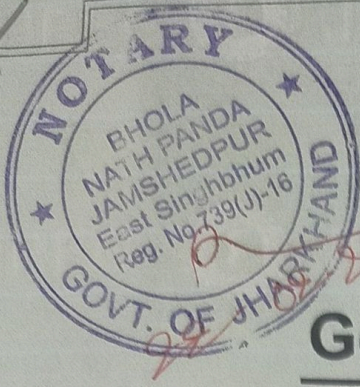 NOTARY
BHOLA
NATH PANDA
JAMSHEDPUR
East Singhbhum
Reg. No.739(J)-16
GOVT. OF JHARKHAND
G